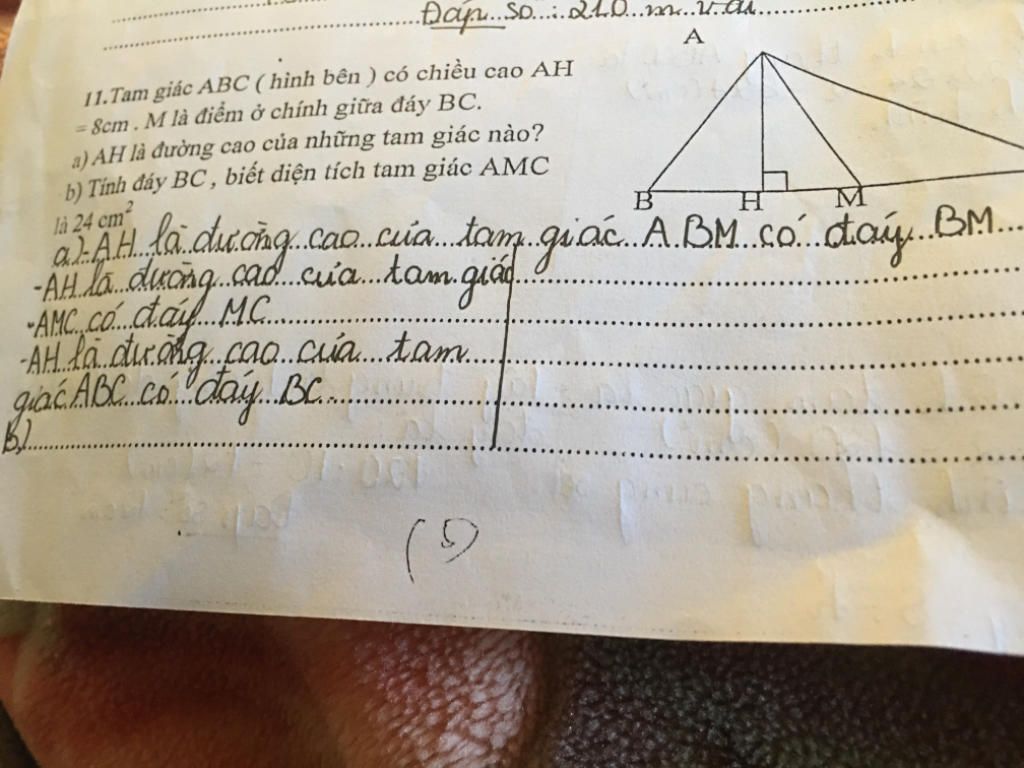 Đáp số : 210 m vải
A
11.Tam giác ABC ( hình bên ) có chiều cao AH
= 8cm . M là điểm ở chính giữa đáy BC.
a) AH là đường cao của những tam giác nào?
b) Tính đáy BC , biết diện tích tam giác AMC
là 24 cm²
B H M
a) - AH là đường cao của tam giác ABM có đáy BM
- AH là đường cao của tam giác
- AMC có đáy MC
- AH là đường cao của tam
giác ABC có đáy BC
b)
(5)